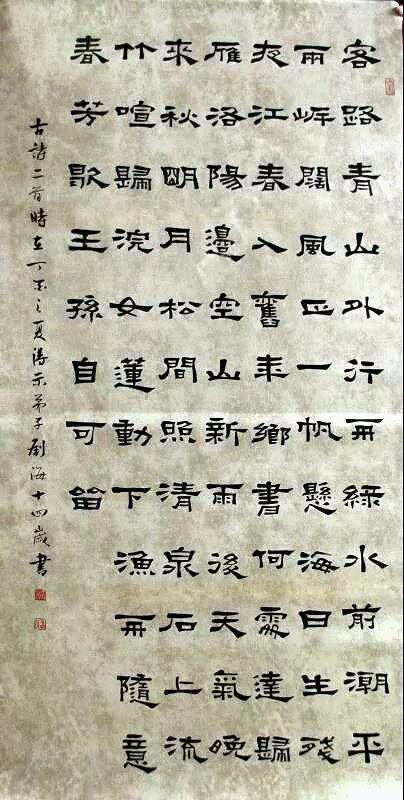 客路青山外行舟綠水前潮平
兩岸闊風正一帆懸海日生殘
夜江春入舊年鄉書何處達歸
雁洛陽邊空山新雨後天氣晚
來秋明月松間照清泉石上流
竹喧歸浣女蓮動下漁舟隨意
春芳歇王孫自可留
古詩二首時在丁亥之夏弟子劉海十四歲書